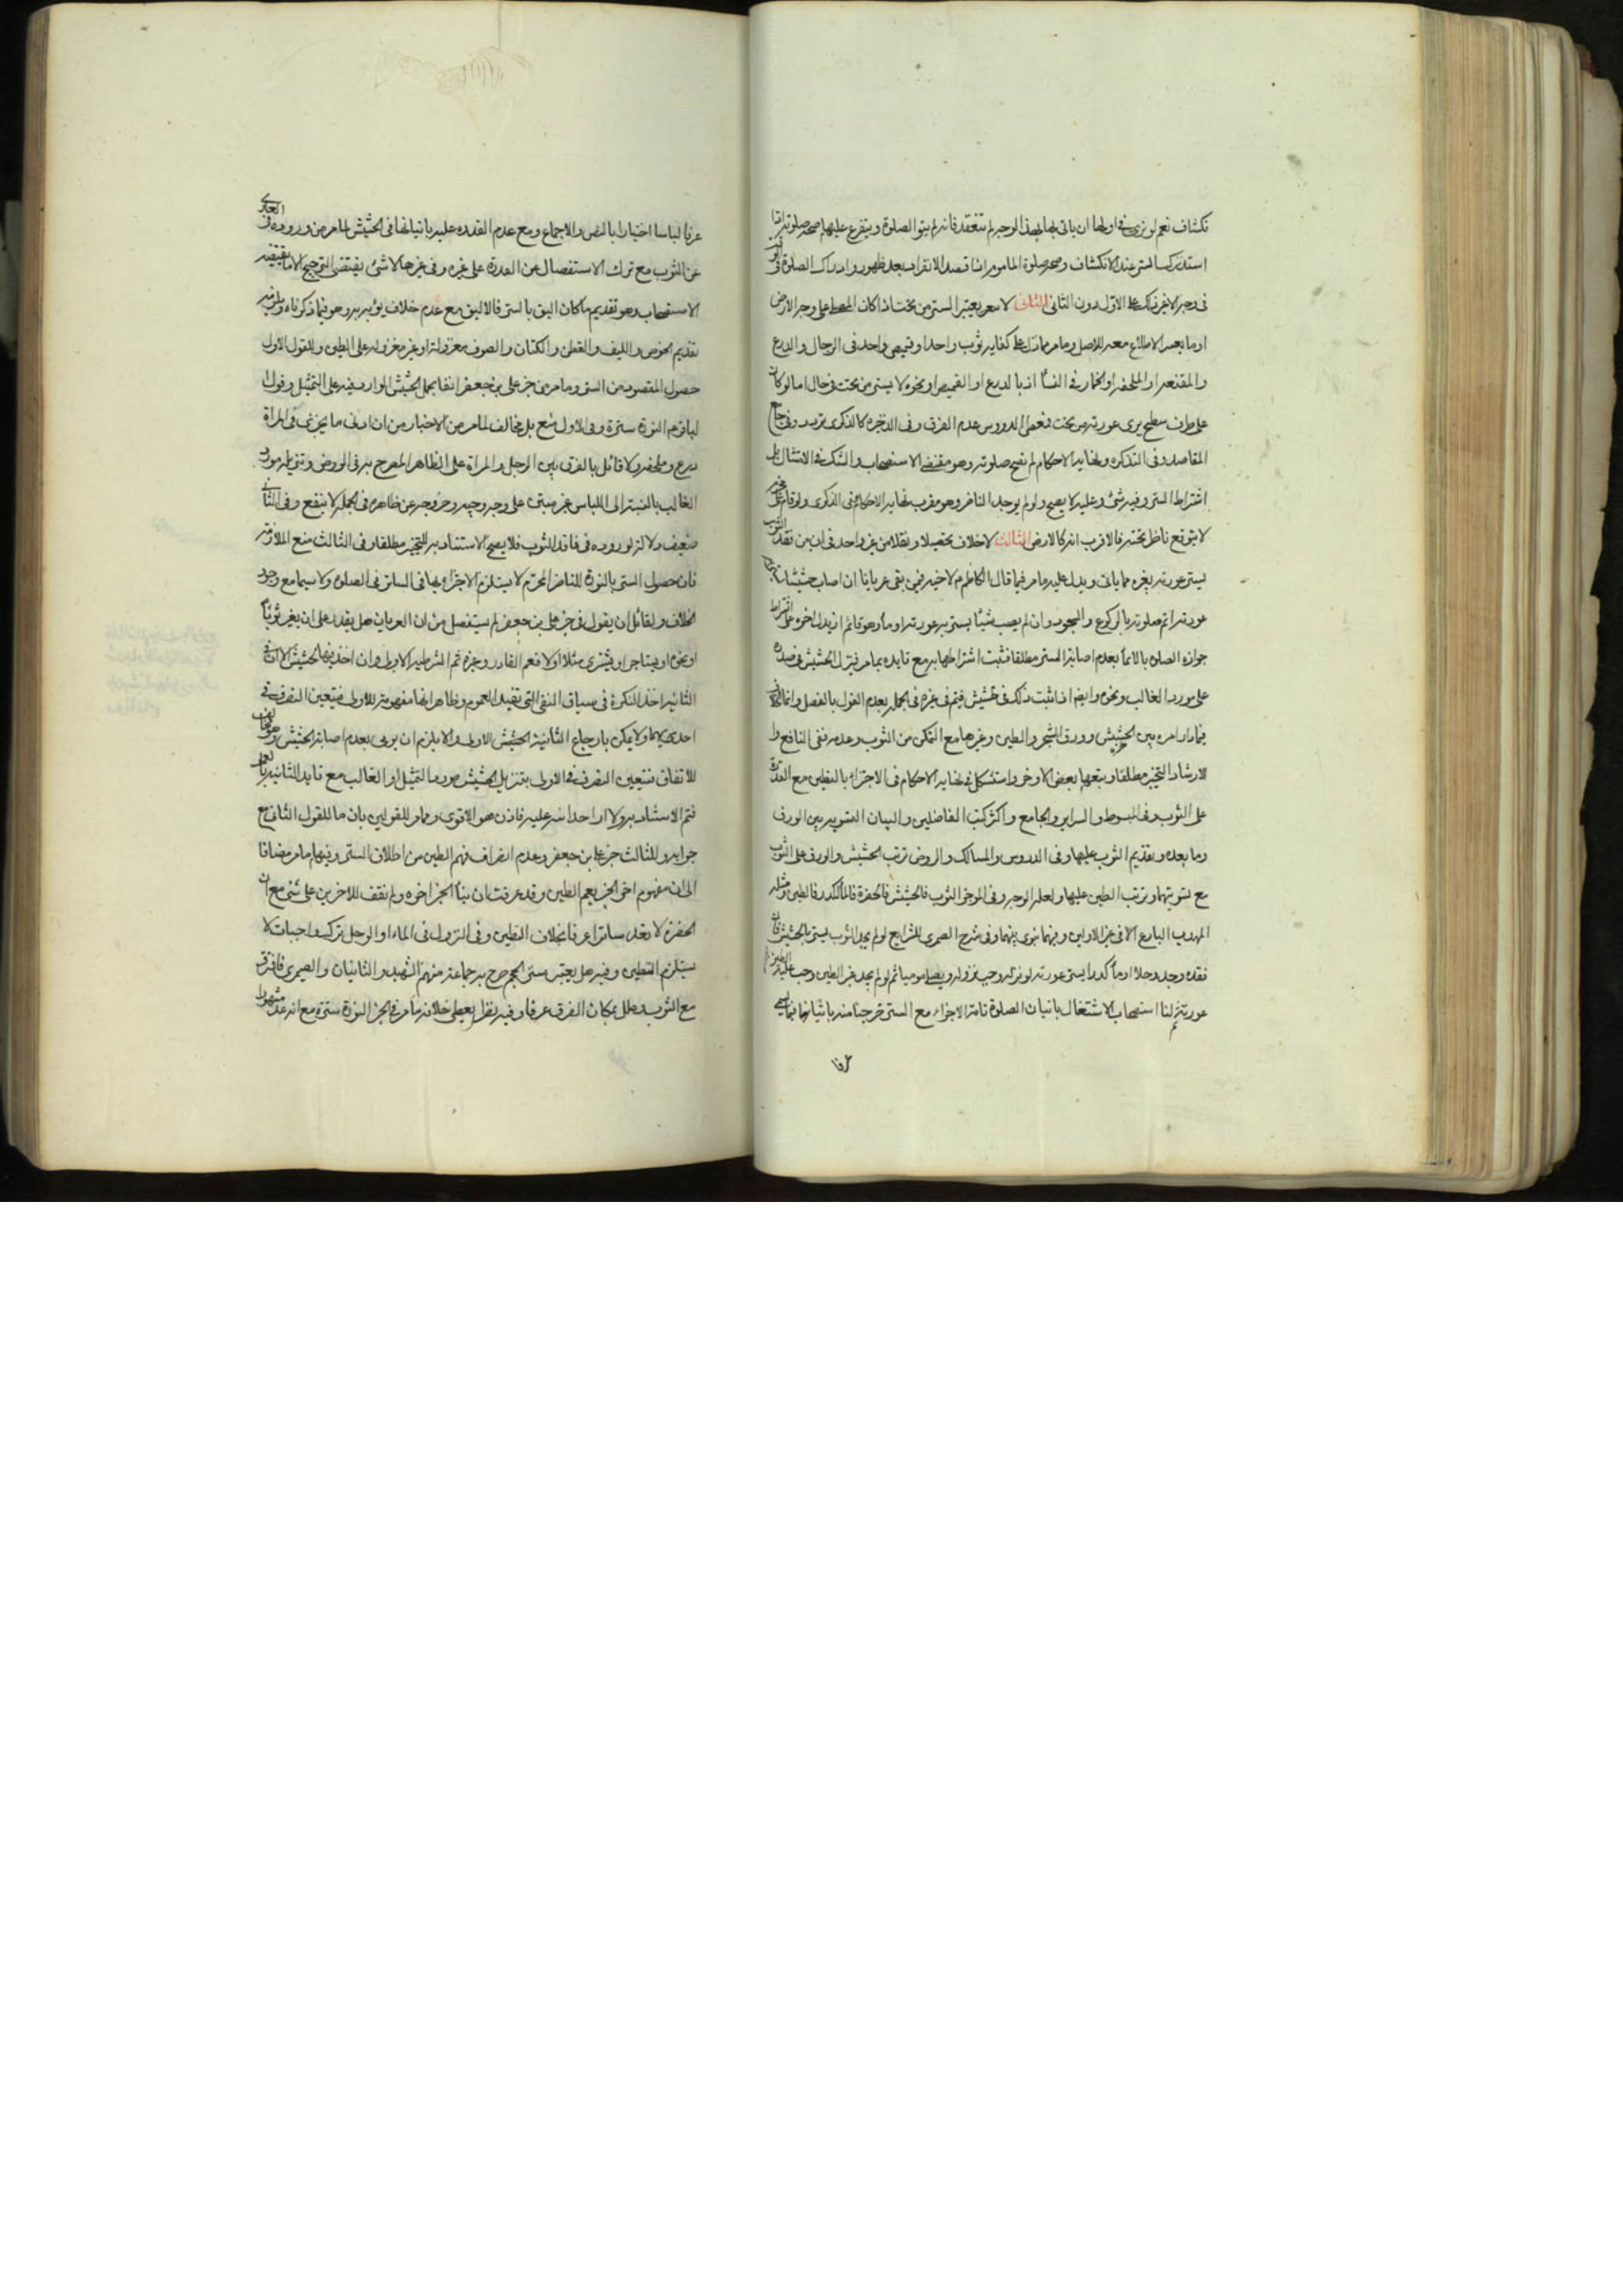 نكشاف نعم لو نوى في اولها ان ياتى بها بهذا الوجه لم تنعقد فانه لم ينو الصلوة ويتفرع عليهما صحة صلوته اذا
استدرك الستر عند الانكشاف وصحة صلوة الماموم اذا قصد الانفراد بعد ظهوره وادراك الصلوة في
في وجه الاخر على الاول دون الثاني الثاني لا يعتبر الستر من تحت اذا كان المصلى على وجه الارض
الاطلاع معه للاصل وما مر مما دل على كفاية ثوب واحد او قميص واحد في الرجال والدرع
والمقنعة او الملحفة او الخمار في النساء اذ بالدرع او القميص او نحوه لا يستر من تحت في حال اما لو كان
على طرف سطح يرى عورته من تحت فعن الدروس عدم الفرق وفي الذخيرة كالذكرى تردد وفي جامع
المقاصد وفي التذكره ونهاية الاحكام لم تصح صلوته وهو مقتضى الاستصحاب والشك في الامتثال بل
اشتراط الستر وفيه شئ وعليه لا يصح ولو لم يوجد الناظر وهو مقرب نهاية الاحكام وفي الذكرى ولو قام على
لا يتوقع ناظر تحته فالاقرب انه كالارض الثالث لا خلاف تحصيلا ونقلا من غير واحد في ان من فقد الثوب
يستر عورته بغيره مما ياتى ويدل عليه ما مر فيما قال الكاظم لاخيه فيمن بقى عريانا ان اصاب حشيشا
عورته اتم صلوته بالركوع والسجود وان لم يصب شيئا يستر به عورته اومأ وهو قائم
جوازه الصلوه بالايماء بعدم اصابة الستر مطلقا فثبت اشتراطها به مع تايده بما مر فينزل الحشيش في صدره
على مورد الغالب ونحوه وايضا اذا ثبت ذلك في حشيش فيتم في غيره في الجملة بعدم القول بالفصل وانما الكلام
فيما دار امره بين الحشيش وورق الشجر والطين وغيرها مع التمكن من الثوب وعدمه ففى النافع و
الارشاد التخيير مطلقا وتبعهما بعض الاواخر واستشكل في نهاية الاحكام في الاجتزاء بالطين مع القدرة
على الثوب وفي المبسوط والسراير والجامع واكثر كتب الفاضلين والبيان التسويه بين الورق
وما بعده وتقديم الثوب عليهما وفي الدروس والمسالك والروض ترتب الحشيش والورق على الثوب
مع تسويتهما وترتب الطين عليهما ولعله الوجه وفي الموجز الثوب فالحشيش فالحفرة فالماء الكدر فالطين ومثله
المهذب البارع الا في غير الاولين وفيهما سوى بينهما وفي شرح الصيمري للشرايع لو لم يجد الثوب يستر بالحشيش فان
فقده وجد وحلا او ماء كدرا يستر عورته لو نزله وجب نزوله ويصلي موميا ثم لو لم يجد غير الطين وجب عليه
لنا استصحاب الاشتغال باتيان الصلوة تامة الاجزاء مع الستر خرجنا منه باتيانها فيما يسمى
عرفا
عرفا لباسا اختيارا بالنص والاجماع ومع عدم القدره عليه باتيانها في الحشيش لما مر من وروده في العاري
عن الثوب مع ترك الاستفصال عن القدرة على غيره وفي غيرها لا شئ يقتضى الترجيح الا ما يقتضيه
الاستصحاب وهو تقديم ما كان اليق بالستر فالاليق مع عدم خلاف يؤبه به وهو فيما ذكرناه
تقديم الخوص والليف والقطن والكتان والصوف مغزولة او غير مغزولة على الطين وللقول الاول
حصول المقصود من الستر وما مر من خبر على بن جعفر انفا بحمل الحشيش الوارد فيه على التمثيل وقول
الباقر النورة سترة وفي الاول منع بل مخالف لما مر من الاخبار من ان ادنى ما يجزى في المراة
درع وملحفة ولا قائل بالفرق بين الرجل والمراة على الظاهر المصرح به في الروض وتنزيله مورد
الغالب بالنسبة الى اللباس غير مبتن على وجه وجيه وخروجه عن ظاهره في الجملة لا ينفع وفي الثاني
ضعيف دلالة لوروده في فاقد الثوب فلا يصح الاستناد به للتخيير مطلقا وفي الثالث منع الملازمة
فان حصول الستر بالنورة للناظر المحترم لا يستلزم الاجتزاء بها في الساتر في الصلوة ولا سيما مع وجود
الخلاف ولقائل ان يقول في خبر على بن جعفر لم يستفصل من ان العريان هل يقدر على ان يعير ثوبا
او نحوه او يستاجر او يشترى مثلا او لا فعم القادر وغيره ثم الشرطية الاولى وان اخذ فيها الحشيش الا ان في
الثانية اخذ النكرة في سياق النفى التى تفيد العموم وظاهر انها مفهومة للاولى فيتعين التصرف في
احديهما ولا يمكن بارجاع الثانية الحشيش للاولى والا يلزم ان يومى بعدم اصابة الحشيش وهو خلاف
للاتفاق فيتعين التصرف في الاولى بتنزيل الحشيش مورد التمثيل او الغالب مع تايد الثانية
فتم الاستناد به ولا ار احدا نبه عليه فاذن هو الاقوى وما مر للقولين بان ما للقول الثاني مع
جوابه وللثالث خبر على بن جعفر وعدم انصراف فهم الطين من اطلاق الستر وفيهما ما مر مضافا
الى ان مفهوم اخر الخبر يعم الطين وقد عرفت ان بناء الخبر اخره ولم نقف للاخرين على شئ مع ان
الحفرة لا تعد ساترا عرفا بخلاف الطين وفي النزول في الماء او الوحل ترك واجبات لا
يستلزم التطيين وفيه هل يعتبر ستر الحجم صرح به جماعة منهم الشهيد والثانيان والصيمري فافترق
مع الثوب وعلل بمكان الفرق عرفا وفيه نظر يعطى خلافه ما مر في الخبر النورة سترة مع انه